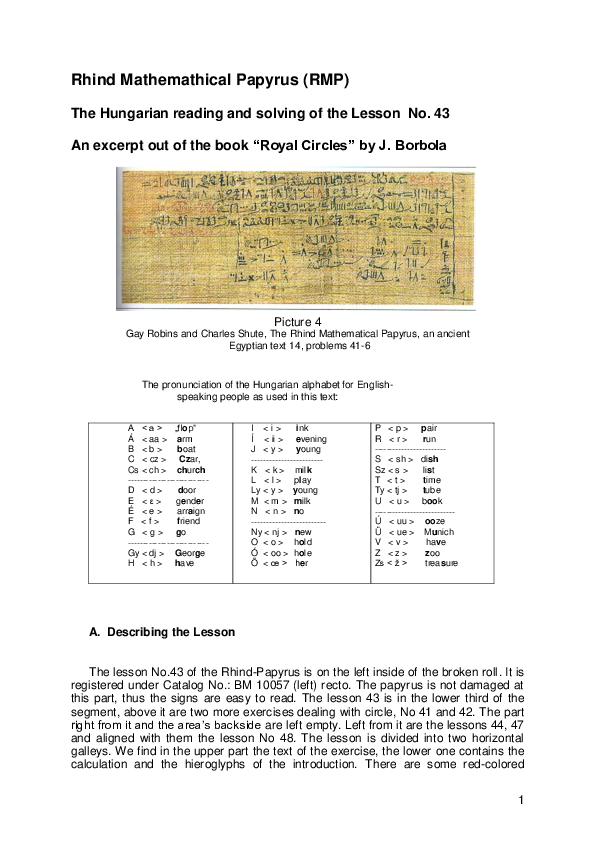 Rhind Mathemathical Papyrus (RMP)
The Hungarian reading and solving of the Lesson No. 43
An excerpt out of the book “Royal Circles” by J. Borbola
Picture 4
Gay Robins and Charles Shute, The Rhind Mathematical Papyrus, an ancient
Egyptian text 14, problems 41-6
The pronunciation of the Hungarian alphabet for English-
speaking people as used in this text:
A < a > „flop”
Á < aa > arm
B < b > boat
C < cz > Czar,
Cs < ch > church
----------------------------
D < d > door
E < ε > gender
É < e > arraign
F < f > friend
G < g > go
----------------------------
Gy < dj > George
H < h > have
I < i > ink
Í < ii > evening
J < y > young
-------------------------
K < k > milk
L < l > play
Ly < y > young
M < m > milk
N < n > no
--------------------------
Ny < nj > new
O < o > hold
Ó < oo > hole
Ő < œ > her
P < p > pair
R < r > run
------------------------
S < sh > dish
Sz < s > list
T < t > time
Ty < tj > tube
U < u > book
----------------------------
Ú < uu > ooze
Ü < ue > Munich
V < v > have
Z < z > zoo
Zs < ž > treasure
A. Describing the Lesson
The lesson No.43 of the Rhind-Papyrus is on the left inside of the broken roll. It is
registered under Catalog No.: BM 10057 (left) recto. The papyrus is not damaged at
this part, thus the signs are easy to read. The lesson 43 is in the lower third of the
segment, above it are two more exercises dealing with circle, No 41 and 42. The part
right from it and the area’s backside are left empty. Left from it are the lessons 44, 47
and aligned with them the lesson No 48. The lesson is divided into two horizontal
galleys. We find in the upper part the text of the exercise, the lower one contains the
calculation and the hieroglyphs of the introduction. There are some red-colored
1